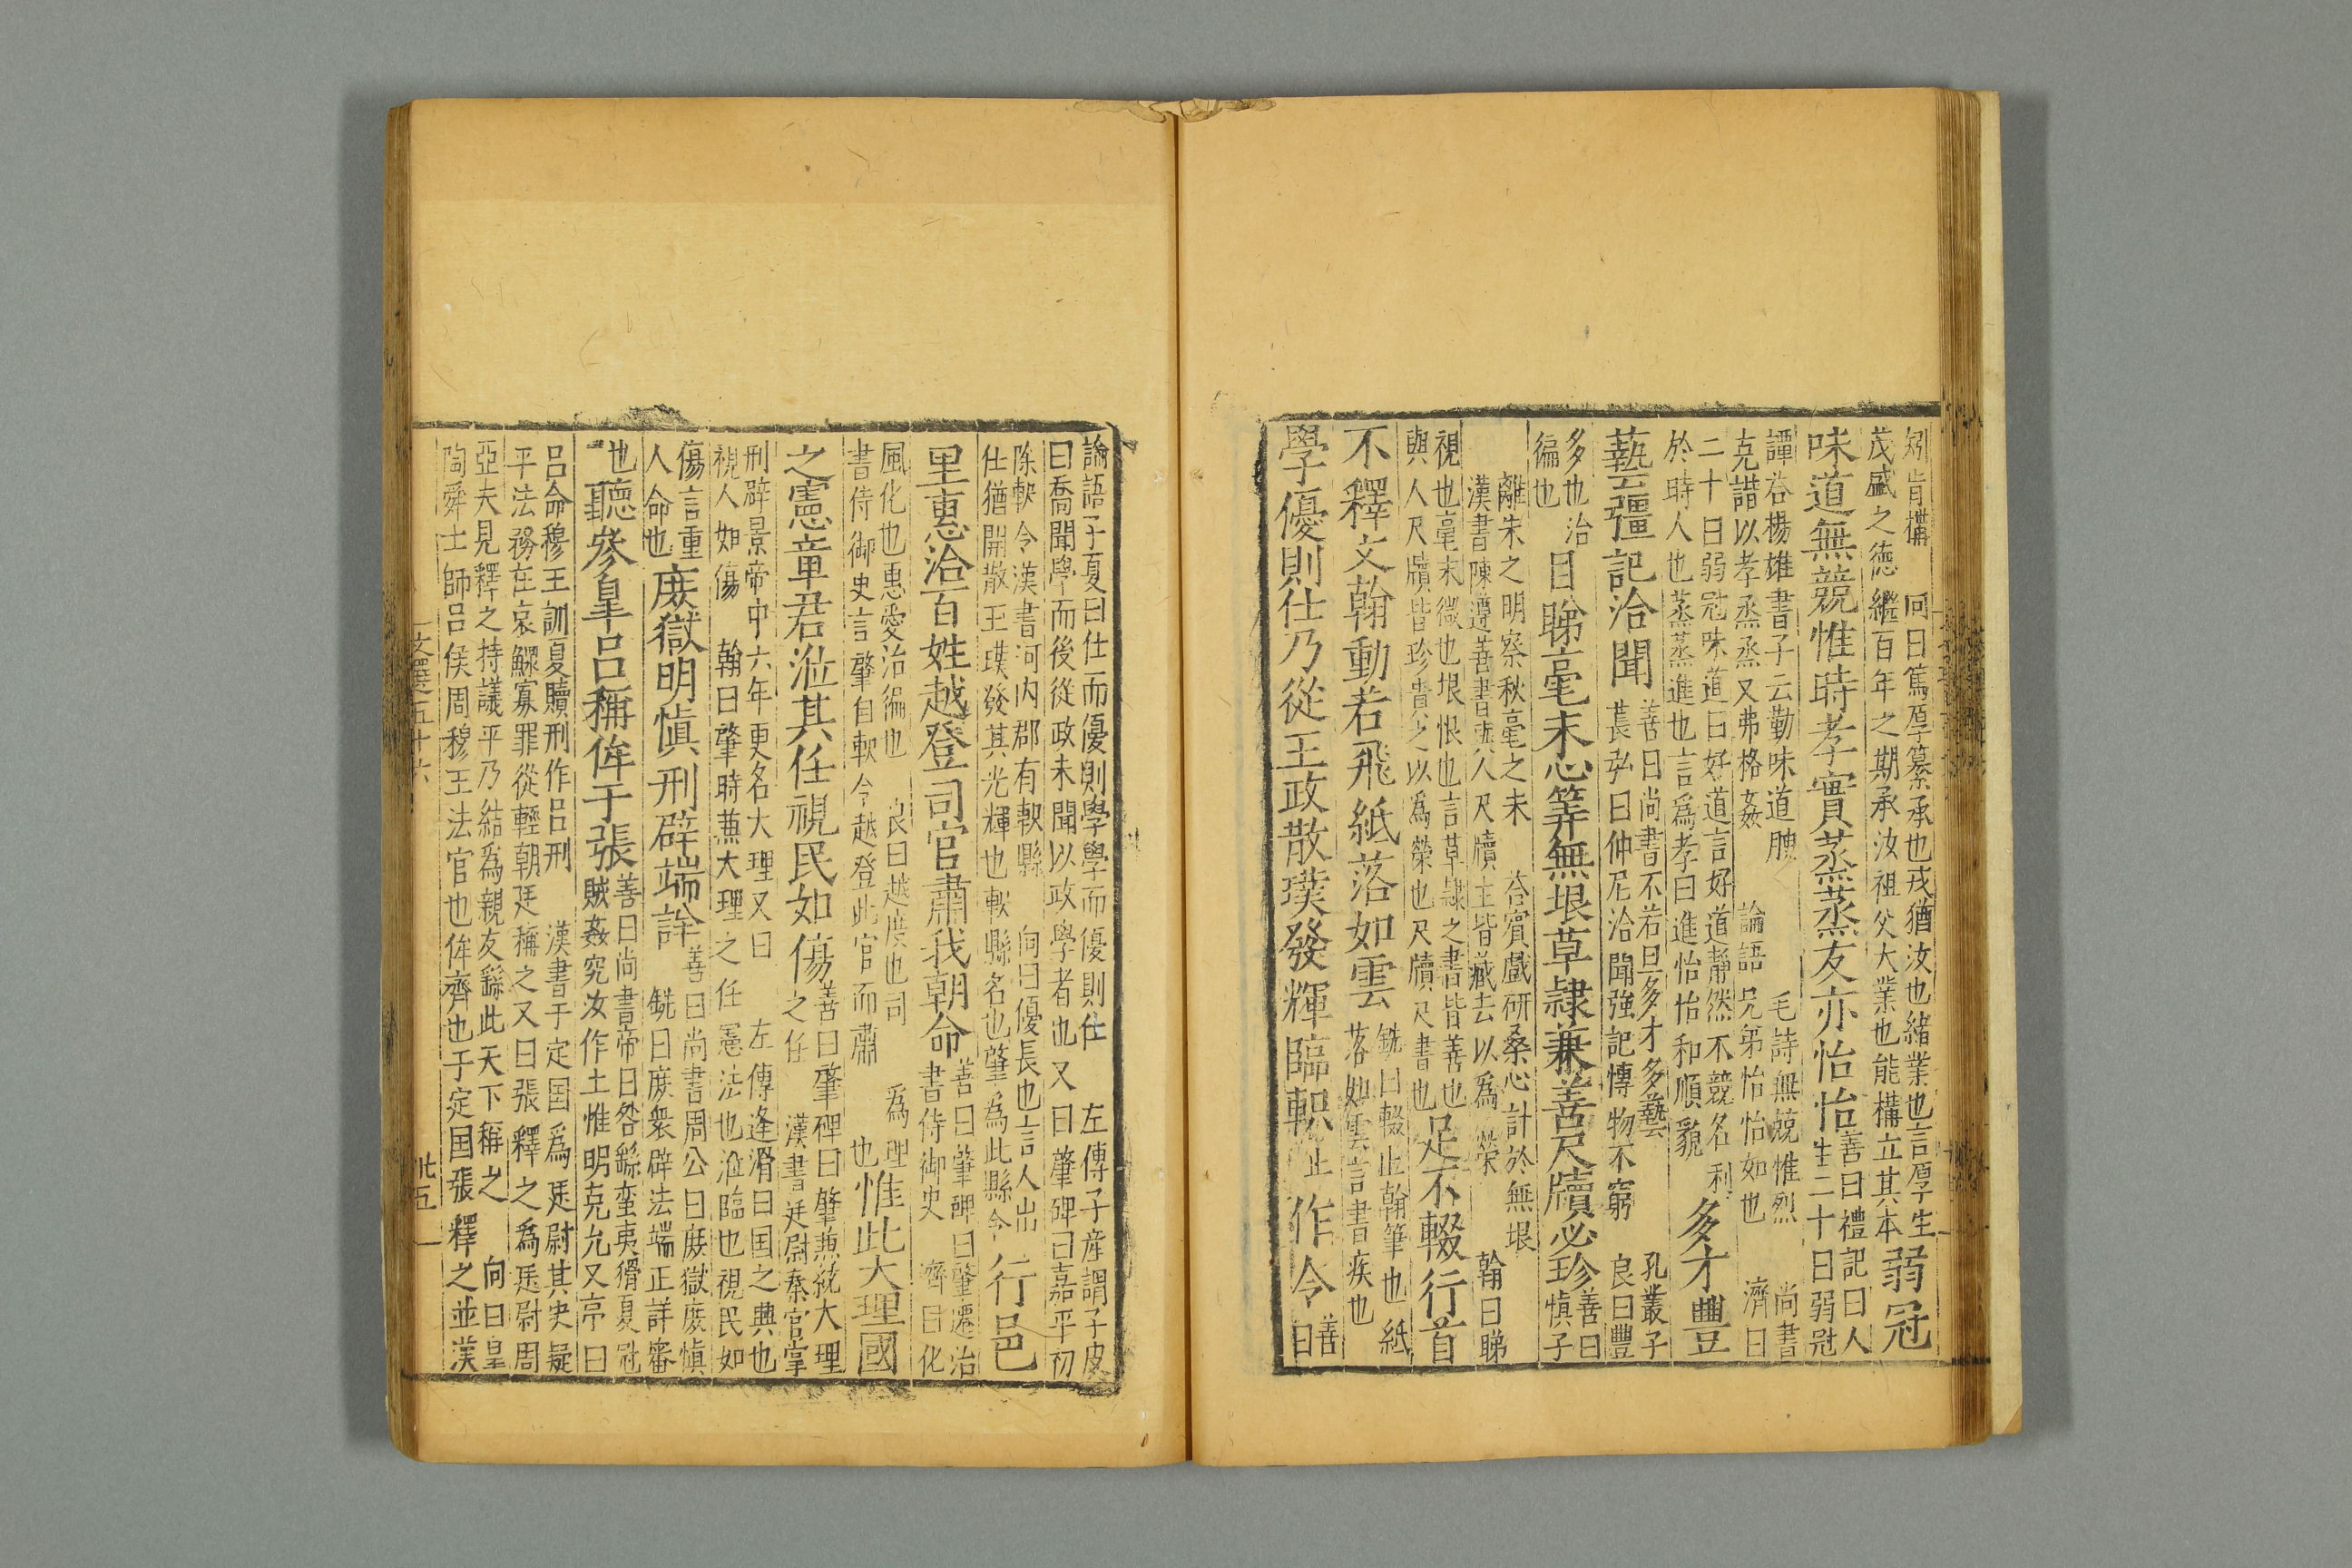 矧肯構 向曰篤厚纂承也戎猶汝也緒業也言厚生
茂盛之德繼百年之期承汝祖父大業也能構立其本
弱冠
味道無競惟時孝實蒸蒸友亦怡怡
善曰禮記曰人
生二十曰弱冠
譚荅楊雄書子云勤味道腴 毛詩無競惟烈 尚書
克諧以孝烝烝乂弗格姦 論語兄弟怡怡如也 濟曰
二十曰弱冠味道曰好道言好道靜然不競名利
於時人也蒸蒸進也言爲孝曰進怡怡和順貌
多才豐
藝彊記洽聞
善曰尚書不若旦多才多藝 孔叢子
萇弘曰仲尼洽聞強記博物不窮 良曰豐
多也洽
徧也
目睇毫末心筭無垠草隷兼善尺牘必珍
善曰
慎子
離朱之明察秋毫之末 荅賓戲研桑心計於無垠
漢書陳遵善書與人尺牘主皆藏去以爲榮 翰曰睇
視也毫末微也垠恨也言草隷之書皆善也
與人尺牘皆珍貴之以爲榮也尺牘尺書也
足不輟行首
不釋文翰動若飛紙落如雲
銑曰輟止翰筆也 紙
落如雲言書疾也
學優則仕乃從王政散璞發輝臨軹止作令
善
曰
論語子夏曰仕而優則學學而優則仕 左傳子産謂子皮
曰喬聞學而後從政未聞以政學者也 又曰肇碑曰嘉平初
除軹令漢書河内郡有軹縣 向曰優長也言人出
仕猶開散玉璞發其光輝也軹縣名也肇爲此縣令
行邑
里惠洽百姓越登司官肅我朝命
善曰肇碑曰肇遷治
書侍御史 濟曰化
風化也惠愛洽徧也 良曰越度也司
書侍御史言肇自軹令越登此官而肅 爲理
也
惟此大理國
之憲章君涖其任視民如傷
善曰肇碑曰肇兼統大理
之任 漢書廷尉秦官掌
刑辟景帝中六年更名大理又曰 左傳逢滑曰国之興也
視人如傷 翰曰肇時兼大理之任憲法也涖臨也視民如
傷言重
人命也
庶獄明慎刑辟端詳
善曰尚書周公曰庶獄庶慎
銑曰庶衆辟法端正詳審
也
聽參皐吕稱侔于張
善曰尚書帝曰咎繇蛮夷猾夏冦
賊姦宄汝作士惟明克允又亭曰
吕命穆王訓夏贖刑作吕刑 漢書于定国爲廷尉其史疑
平法務在哀鰥寡罪從輕朝廷稱之又曰張釋之爲廷尉周
亞夫見釋之持議平乃結爲親友繇此天下稱之 向曰皐
陶舜士師吕侯周穆王法官也侔齊也于定国張釋之並漢
文選五十六 廿五